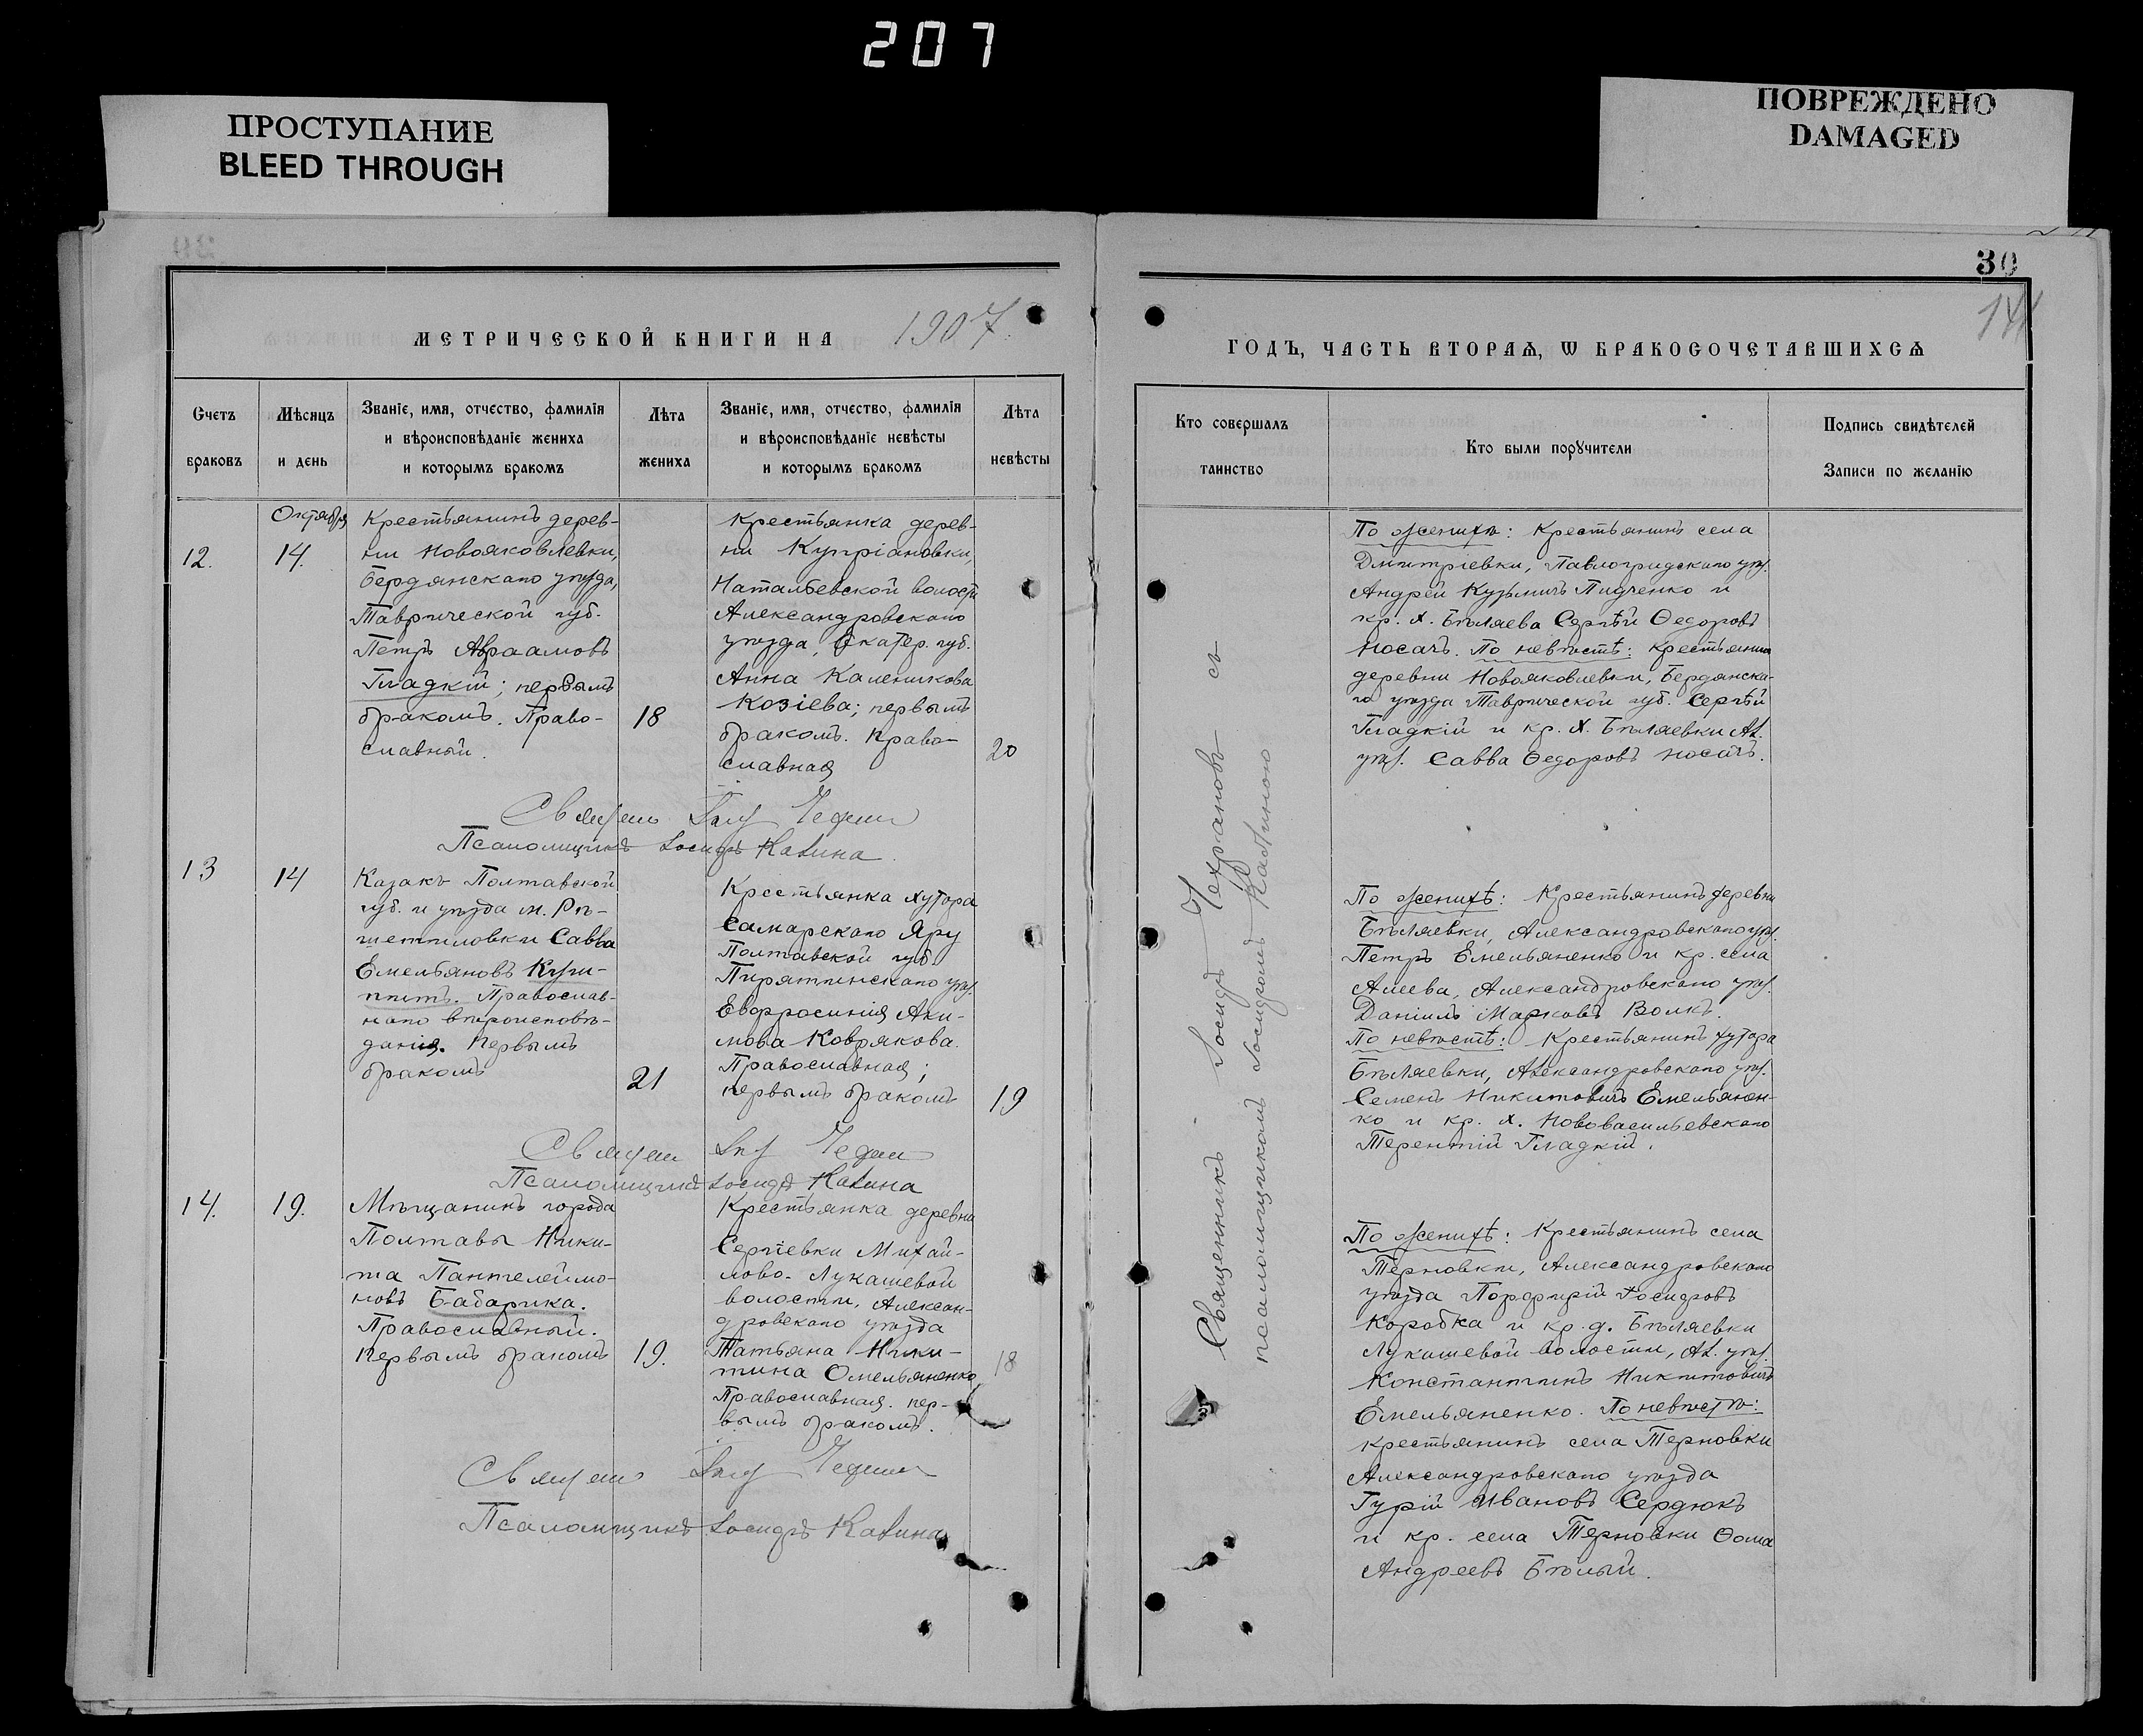 207
ПРОСТУПАНИЕ
BLEED THROUGH
ПОВРЕЖДЕНО
DAMAGED
30
141
МЕТРИЧЕСКОЙ КНИГИ НА 1907
ГОДЪ, ЧАСТЬ ВТОРАѦ, Ѡ БРАКОСОЧЕТАВШИХСѦ
Счетъ
браковъ
Мѣсяцъ
и день
Званіе, имя, отчество, фамилія
и вѣроисповѣданіе жениха
и которымъ бракомъ
Лѣта
жениха
Званіе, имя, отчество, фамилія
и вѣроисповѣданіе невѣсты
и которымъ бракомъ
Лѣта
невѣсты
Кто совершалъ
таинство
Кто были поручители
Подпись свидѣтелей
Записи по желанію
Октября
12.
14.
Крестьянинъ дерев-
ни Новояковлевки,
Бердянскаго уѣзда,
Таврической губ.
Петръ Авраамовъ
Гладкій; первымъ
бракомъ. Право-
славный.
18
Крестьянка дерев-
ни Купріановки,
Натальевской волости
Александровскаго
уѣзда, Екатер. губ.
Анна Каленикова
Козіева; первымъ
бракомъ. Право-
славная
20
По женихѣ: Крестьянинъ села
Дмитріевки, Павлоградскаго уѣз.
Андрей Кузьмичъ Пидченко и
кр. х. Бѣляева Сергѣй Ѳедоровъ
Носачъ. По невѣстѣ: крестьянинъ
деревни Новояковлевки, Бердянска-
го уѣзда Таврической губ. Сергѣй
Гладкій и кр. х. Бѣляевки Ал.
уѣз. Савва Ѳедоровъ Носачъ.
Псаломщикъ Іосифъ Калина
13
14
Казакъ Полтавской
губ. и уѣзда м. Рѣ-
шетиловки Савва
Емельяновъ
Православ-
наго вѣроисповѣ-
данія. Первымъ
бракомъ
21
Крестьянка хутора
Самарскаго Яру
Полтавской губ.
Пирятинскаго уѣз.
Евфросинія Аки-
мова Коврякова.
Православная;
первымъ бракомъ
19
По женихѣ: Крестьянинъ деревни
Бѣляевки, Александровскаго уѣз.
Петръ Емельяненко и кр. села
Александровскаго уѣз.
Даніилъ Марковъ Волкъ.
По невѣстѣ: Крестьянинъ хутора
Бѣляевки, Александровскаго уѣз.
Семенъ Никитовичъ Емельянен-
ко и кр. х. Нововасильевскаго
Терентій Гладкій.
Псаломщикъ Іосифъ Калина
14.
19.
Мѣщанинъ города
Полтавы Ники-
та Пантелеймо-
новъ Бабарика.
Православный.
Первымъ бракомъ
19.
Крестьянка деревни
Сергіевки Михай-
лово-Лукашевой
волости, Алексан-
дровскаго уѣзда
Татьяна Ники-
тина Омельяненко
Православная. пер-
вымъ бракомъ.
18
По женихѣ: Крестьянинъ села
Терновки, Александровскаго
уѣзда Порфирій Іосифовъ
Коробка и кр. д. Бѣляевки
Лукашевой волости, Ал. уѣз.
Константинъ Никитовичъ
Емельяненко. По невѣстѣ:
крестьянинъ села Терновки
Александровскаго уѣзда
Гурій Ивановъ Сердюкъ
и кр. села Терновки Ѳома
Андреевъ Бѣлый.
Псаломщикъ Іосифъ Калина
Священникъ Іосифъ съ
псаломщикомъ Іосифомъ Калиною